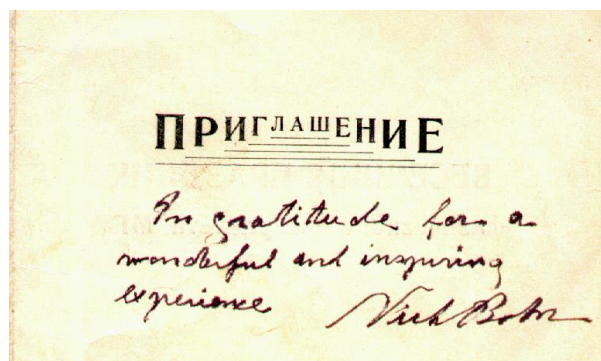 ПРИГЛАШЕНИЕ
In gratitude for a
wonderful and inspiring
experience Niels Bohr